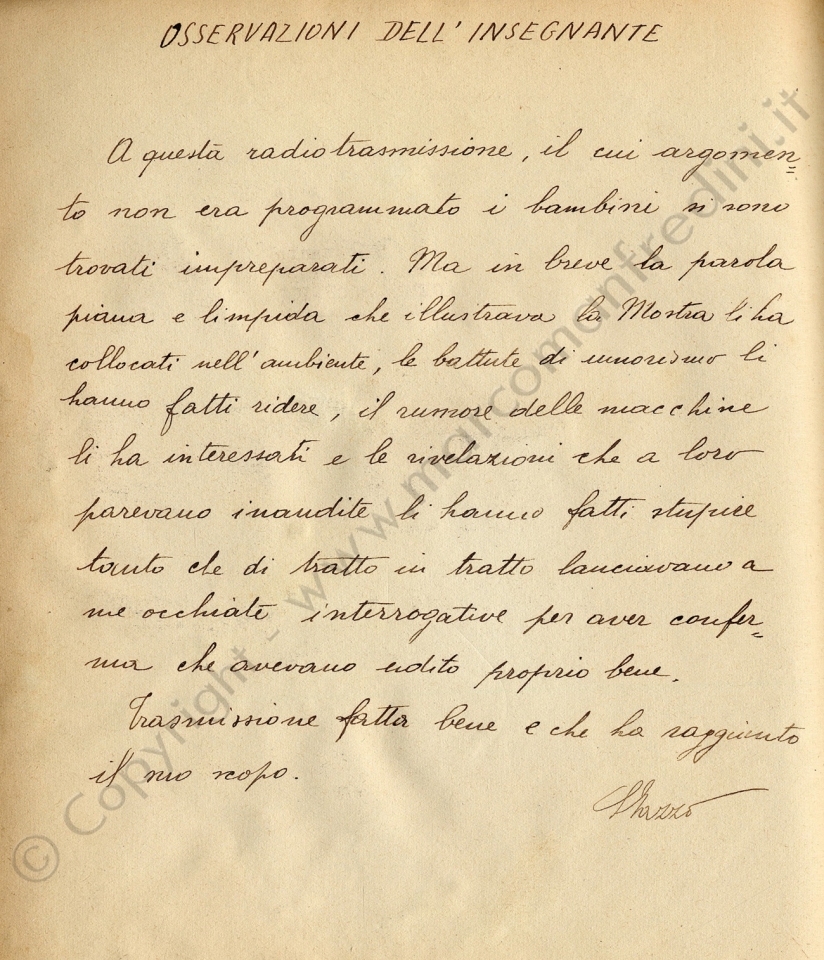 OSSERVAZIONI DELL'INSEGNANTE
A questa radiotrasmissione, il cui argomen=
to non era programmato i bambini si sono
trovati impreparati. Ma in breve la parola
piana e limpida che illustrava la Mostra li ha
collocati nell'ambiente, le battute di umorismo li
hanno fatti ridere, il rumore delle macchine
li ha interessati e le rivelazioni che a loro
parevano inaudite li hanno fatti stupire
tanto che di tratto in tratto lanciavano a
me occhiate interrogative per aver confer=
ma che avevano udito proprio bene.
Trasmissione fatta bene e che ha raggiunto
il suo scopo.
© Copyright - www.marcomanfredini.it